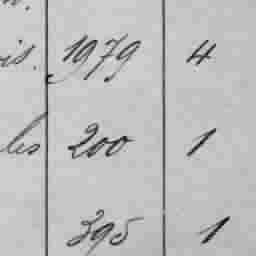 is. 1979 4
les 200 1
395 1